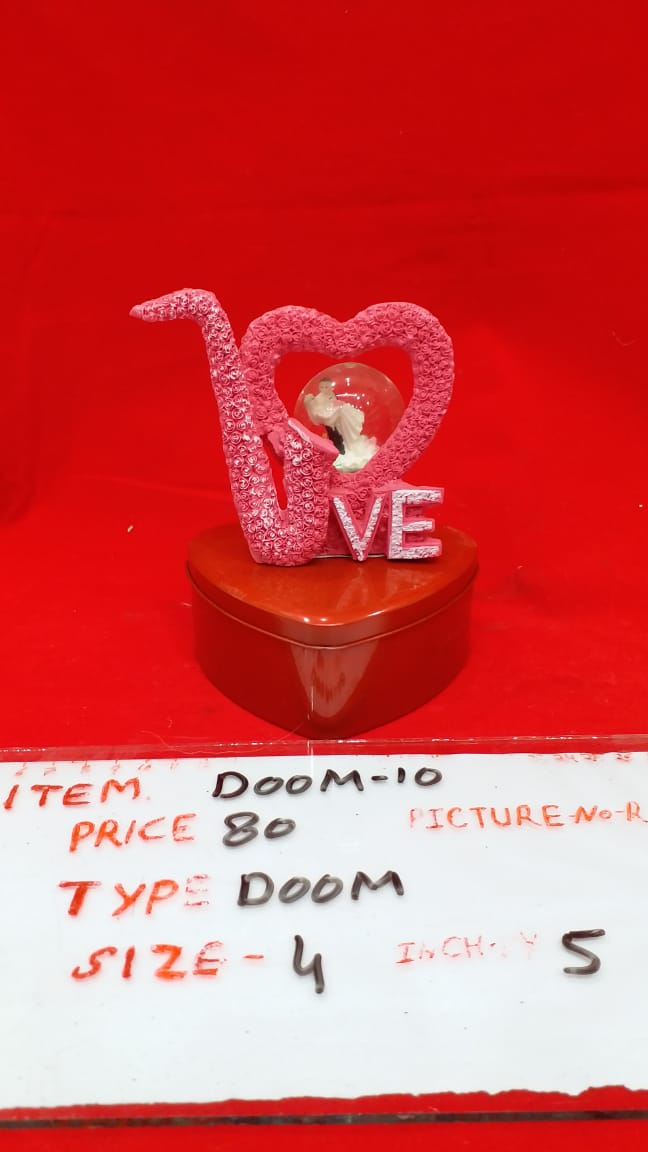 VE
ITEM. DOOM-10
PRICE 80 PICTURE-No-R
TYPE DOOM
SIZE - 4 INCH- 5